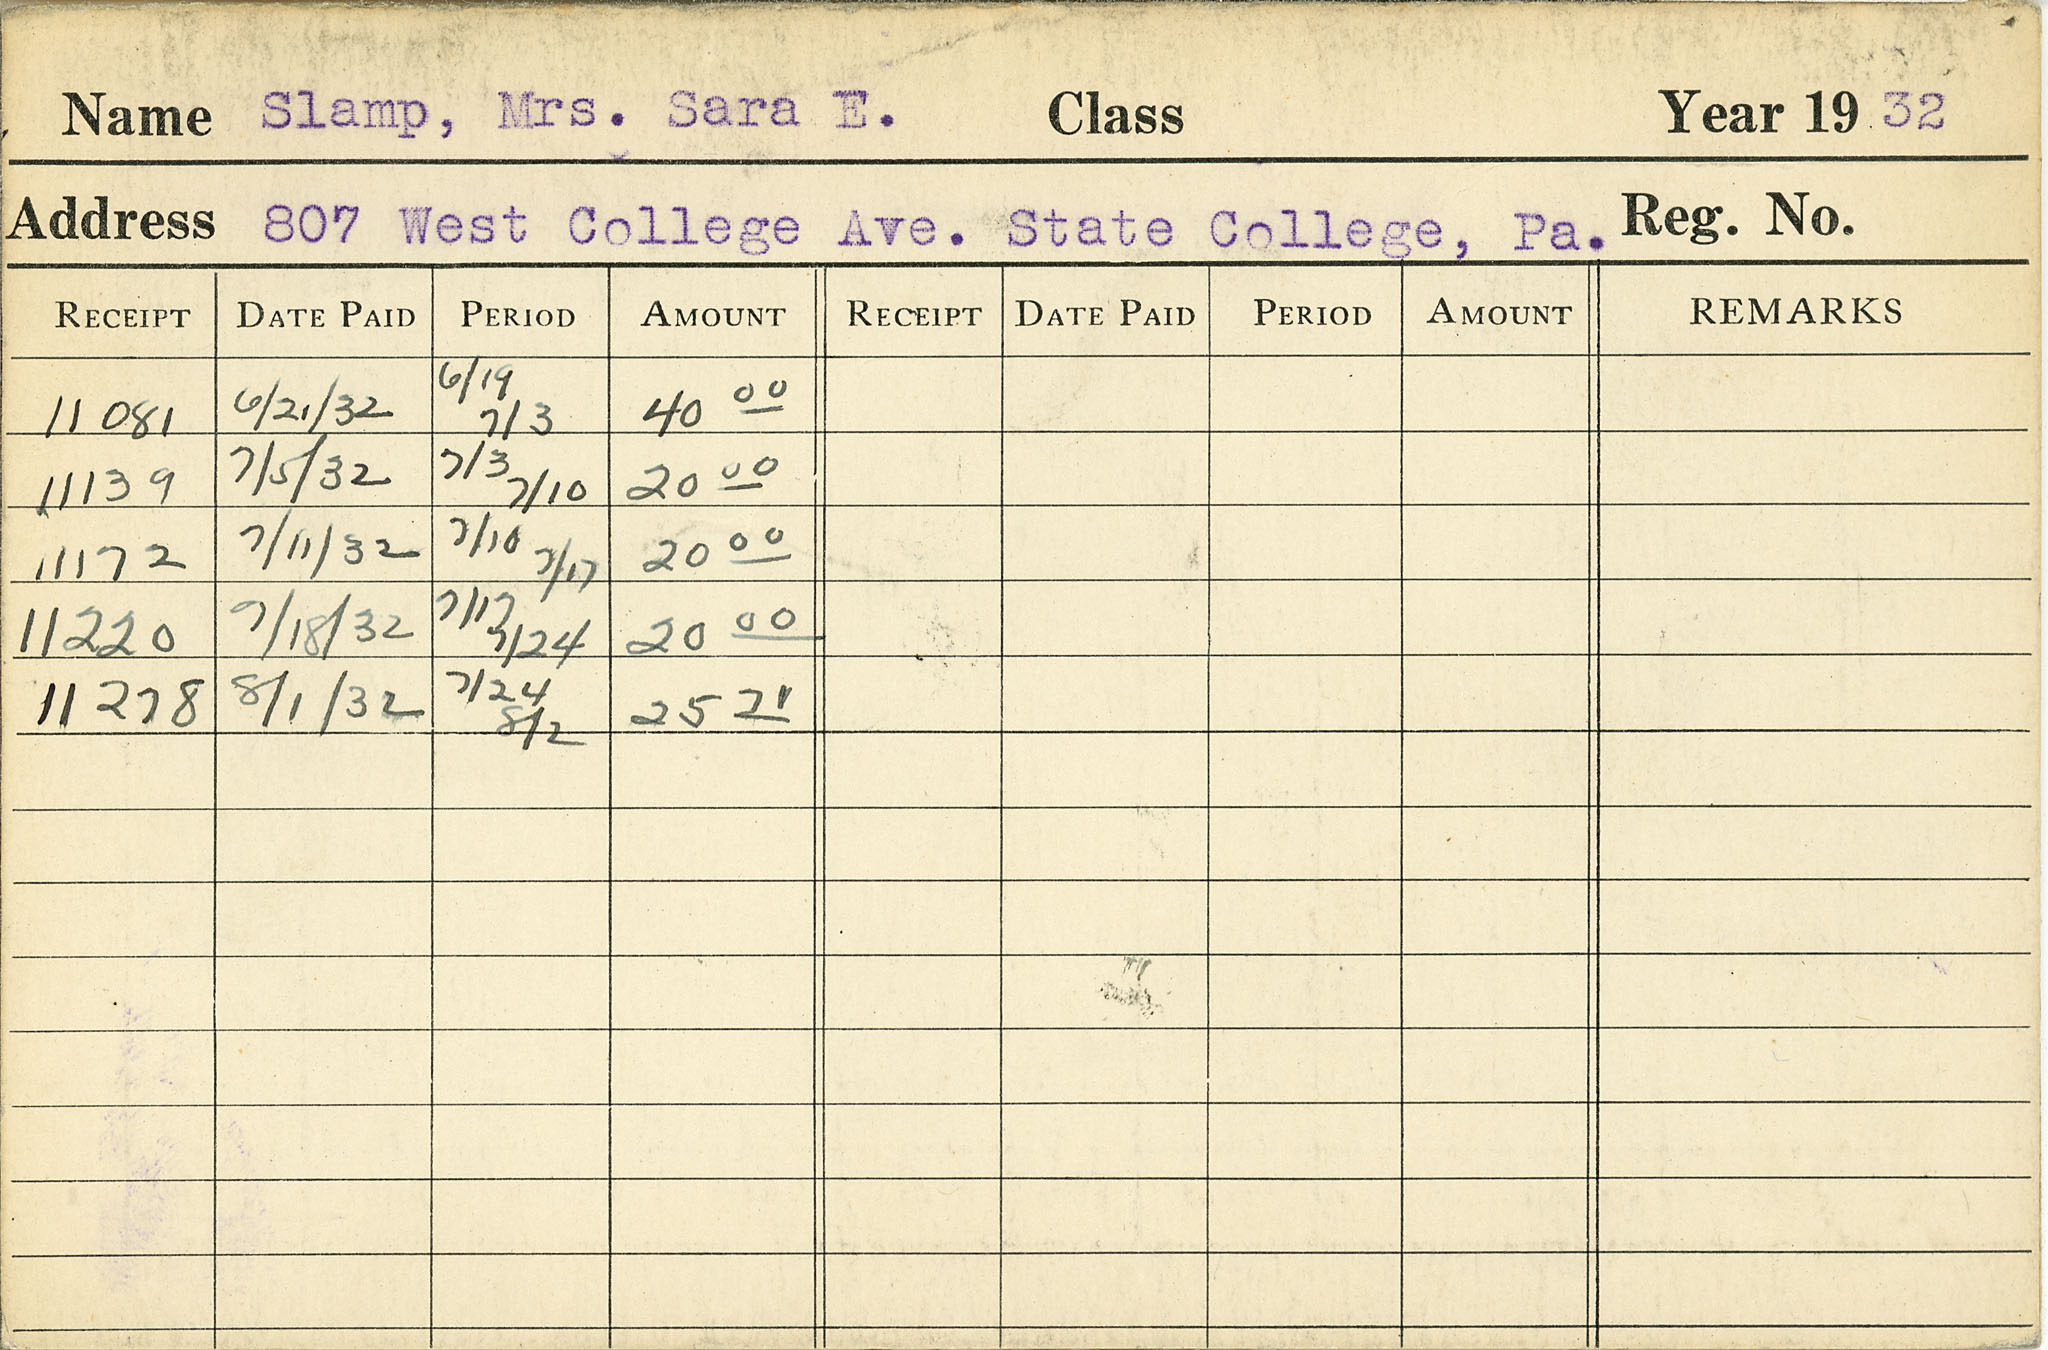 Name Slamp, Mrs. Sara E. Class Year 19 32
Address 807 West College Ave. State College, Pa. Reg. No.
RECEIPT DATE PAID PERIOD AMOUNT RECEIPT DATE PAID PERIOD AMOUNT REMARKS
11081 6/21/32 6/19 7/3 40 00
11139 7/5/32 7/3 7/10 20 00
11172 7/11/32 7/10 7/17 20 00
11220 7/18/32 7/17 7/24 20 00
11278 8/1/32 7/24 8/2 25 71